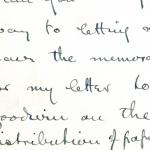 way to letting
our the memora
or my letter to
goodwin on the
istribution of pape